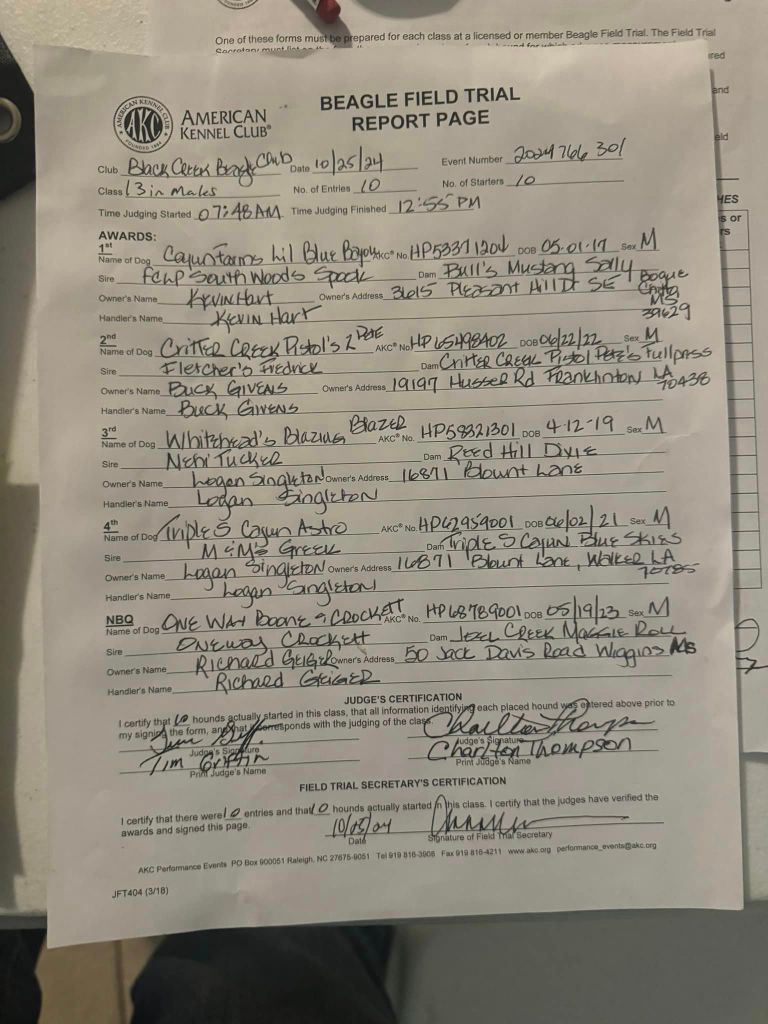 One of these forms must be prepared for each class at a licensed or member Beagle Field Trial. The Field Trial
AMERICAN KENNEL CLUB
AKC
FOUNDED 1884
AMERICAN
KENNEL CLUB®
BEAGLE FIELD TRIAL
REPORT PAGE
Club Black Creek Beagle Club Date 10/25/24 Event Number 2024766301
Class 13 in Males No. of Entries 10 No. of Starters 10
Time Judging Started 07:48 AM Time Judging Finished 12:55 PM
AWARDS:
1st
Name of Dog CajunFarms Lil Blue Bayou AKC® No. HP53371204 DOB 05-01-17 Sex M
Sire FCHP SouthWoods Spock Dam Bull's Mustang Sally
Owner's Name Kevin Hart Owner's Address 3615 Pleasant Hill Dr SE Bogue Chitto MS 39629
Handler's Name Kevin Hart
2nd
Name of Dog Critter Creek Pistol's 2 Pete AKC® No. HP65498402 DOB 06/22/22 Sex M
Sire Fletcher's Fredrick Dam Critter Creek Pistol Pete's Fullpass
Owner's Name Buck Givens Owner's Address 19197 Husser Rd Franklinton LA 70438
Handler's Name Buck Givens
3rd
Name of Dog Whitehead's Blazing Blazer AKC® No. HP58321301 DOB 4-12-19 Sex M
Sire Nehi Tucker Dam Reed Hill Dixie
Owner's Name Logan Singleton Owner's Address 16871 Blount Lane
Handler's Name Logan Singleton
4th
Name of Dog Triple S Cajun Astro AKC® No. HP62959001 DOB 06/02/21 Sex M
Sire M & M's Greek Dam Triple S Cajun Blue Skies
Owner's Name Logan Singleton Owner's Address 16871 Blount Lane, Walker LA 70785
Handler's Name Logan Singleton
NBQ
Name of Dog One Way Boone & Crockett AKC® No. HP68789001 DOB 05/19/23 Sex M
Sire Oneway Crockett Dam Creek Maggie Roll
Owner's Name Richard Geiger Owner's Address 50 Jack Davis Road Wiggins Ms
Handler's Name Richard Geiger
JUDGE'S CERTIFICATION
I certify that 10 hounds actually started in this class, that all information identifying each placed hound was entered above prior to
my signing the form, and that it corresponds with the judging of the class.
Judge's Signature Judge's Signature
Tim Griffin Charlton Thompson
Print Judge's Name Print Judge's Name
FIELD TRIAL SECRETARY'S CERTIFICATION
I certify that there were 10 entries and that 10 hounds actually started in this class. I certify that the judges have verified the
awards and signed this page.
Date Signature of Field Trial Secretary
AKC Performance Events PO Box 900051 Raleigh, NC 27675-9051 Tel 919 816-3908 Fax 919 816-4211 www.akc.org performance_events@akc.org
JFT404 (3/18)